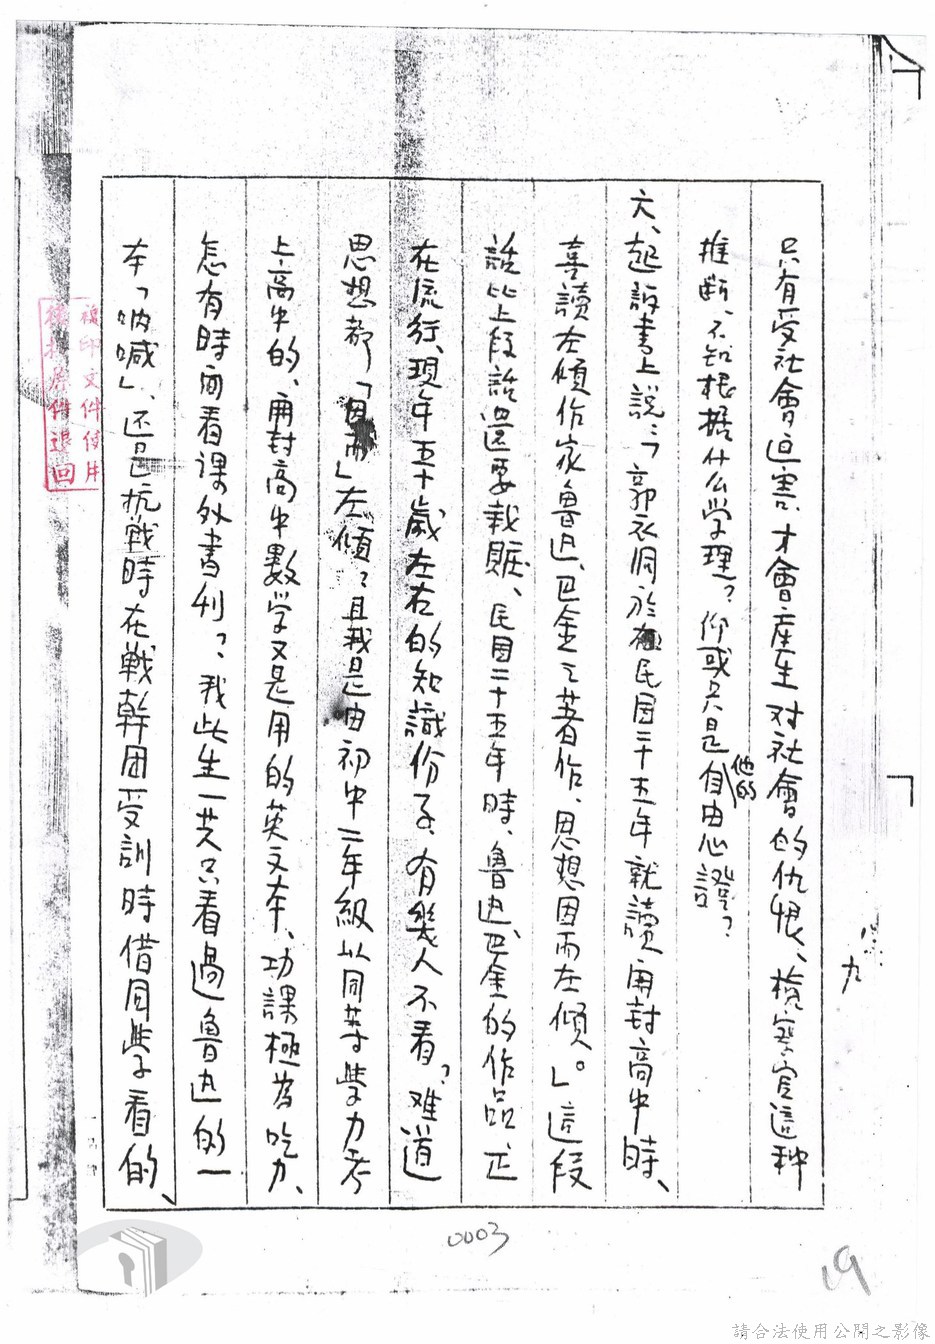 只有受社會迫害、才會産生对社會的仇恨、檢察官這种
推断、不知根据什么学理？仰或只是他的自由心證？
六、起訴書上説：「郭衣洞於民国二十五年就讀開封高中時、
喜讀左傾作家魯迅、巴金之著作、思想因而左傾。」這段
話比上段話還要栽賍、民国二十五年時、魯迅、巴金的作品正
在流行、現年五十歲左右的知識份子、有幾人不看？难道
思想都「因而」左傾？且我是由初中二年級以同等學力考
上高中的、開封高中數学又是用的英文本、功課極为吃力、
怎有時间看课外書刊？我此生一共只看過魯迅的一
本「吶喊」、还是抗戰時在戰幹团受訓時借同學看的、
九
複印文件使用
後於原件退回
0003
19
請合法使用公開之影像